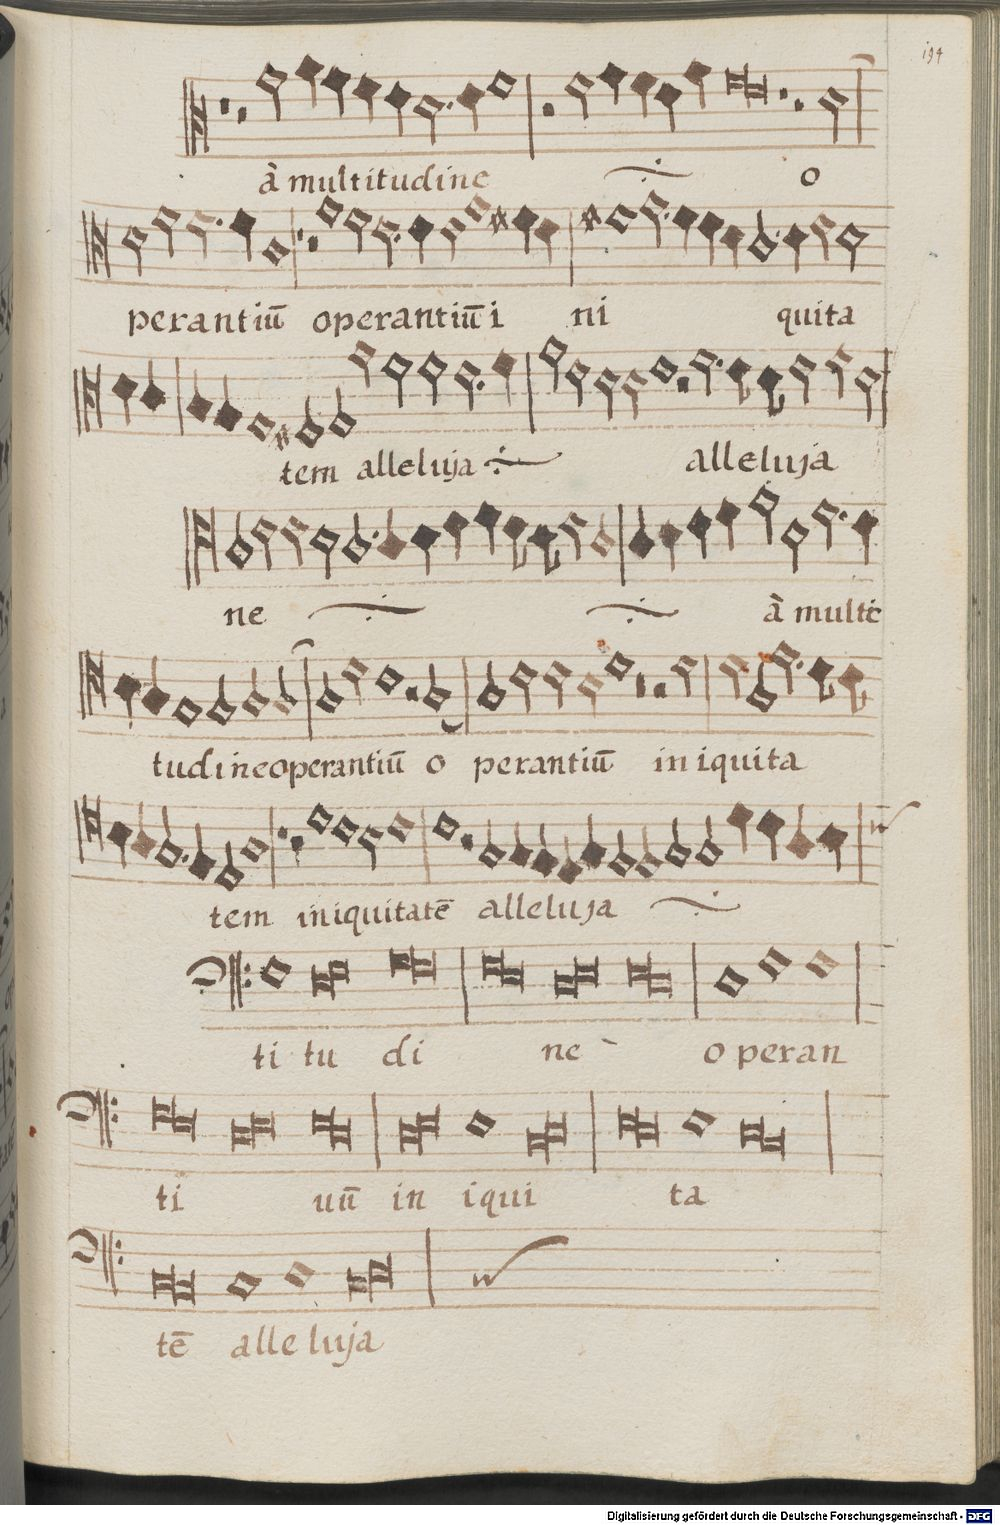 194
à multitudine o
perantiū operantiū i ni quita
tem alleluja alleluja
ne à multi
tudine operantiū o perantiū iniquita
tem iniquitatē alleluja
ti tu di ne operan
ti uū in iqui ta
tē alleluja
Digitalisierung gefördert durch die Deutsche Forschungsgemeinschaft - DFG